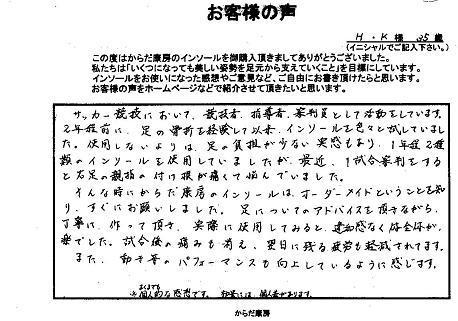 お客様の声
H・K 様 35 歳
(イニシャルでご記入下さい。)
この度はからだ康房のインソールを御購入頂きましてありがとうございました。
私たちは「いくつになっても美しい姿勢を足元から支えていくこと」を目標にしています。
インソールをお使いになった感想やご意見など、ご自由にお書き頂けたらと思います。
お客様の声をホームページなどで紹介させて頂きたいと思います。
サッカー競技において、競技者、指導者、審判員として活動をしています。
2年程前に、足の骨折を経験して以来、インソールを色々と試していまし
た。使用しないよりは、足の負担が少ない実感もあり、1年程2種
類のインソールを使用していましたが、最近、1試合審判をする
と右足の親指の付け根が痛くて悩んでいました。
そんな時にからだ康房のインソールは、オーダーメイドということを知
り、すぐにお願いしました。足についてのアドバイスを頂きながら、
丁寧に、作って頂き、実際に使用してみると、違和感なく体全体が
楽でした。試合後の痛みも消え、翌日に残る疲労も軽減されてます。
また、動き等のパフォーマンスも向上しているように感じます。
※個人的な感想です。 効果には、個人差があります。
からだ康房